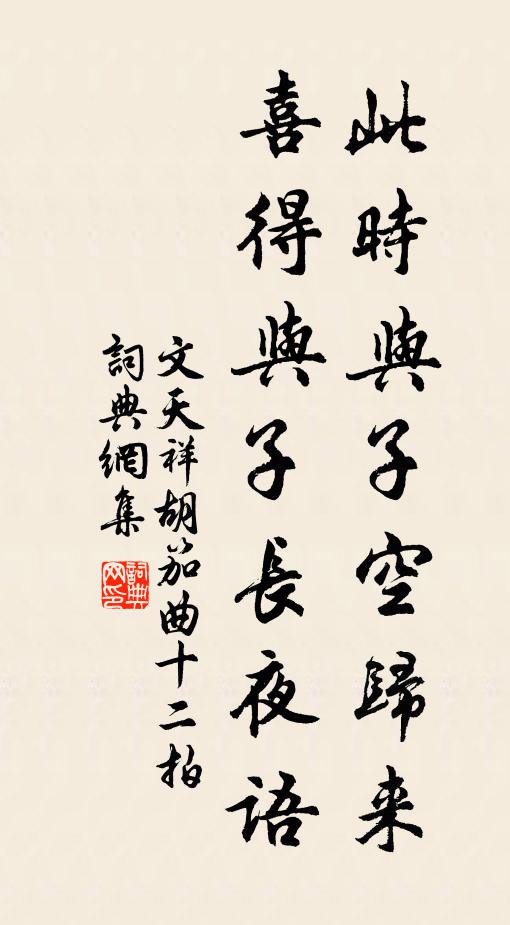 此時與子空歸来
喜得與子長夜語
文天祥胡笳曲十二拍
詞典網集
詞典网印